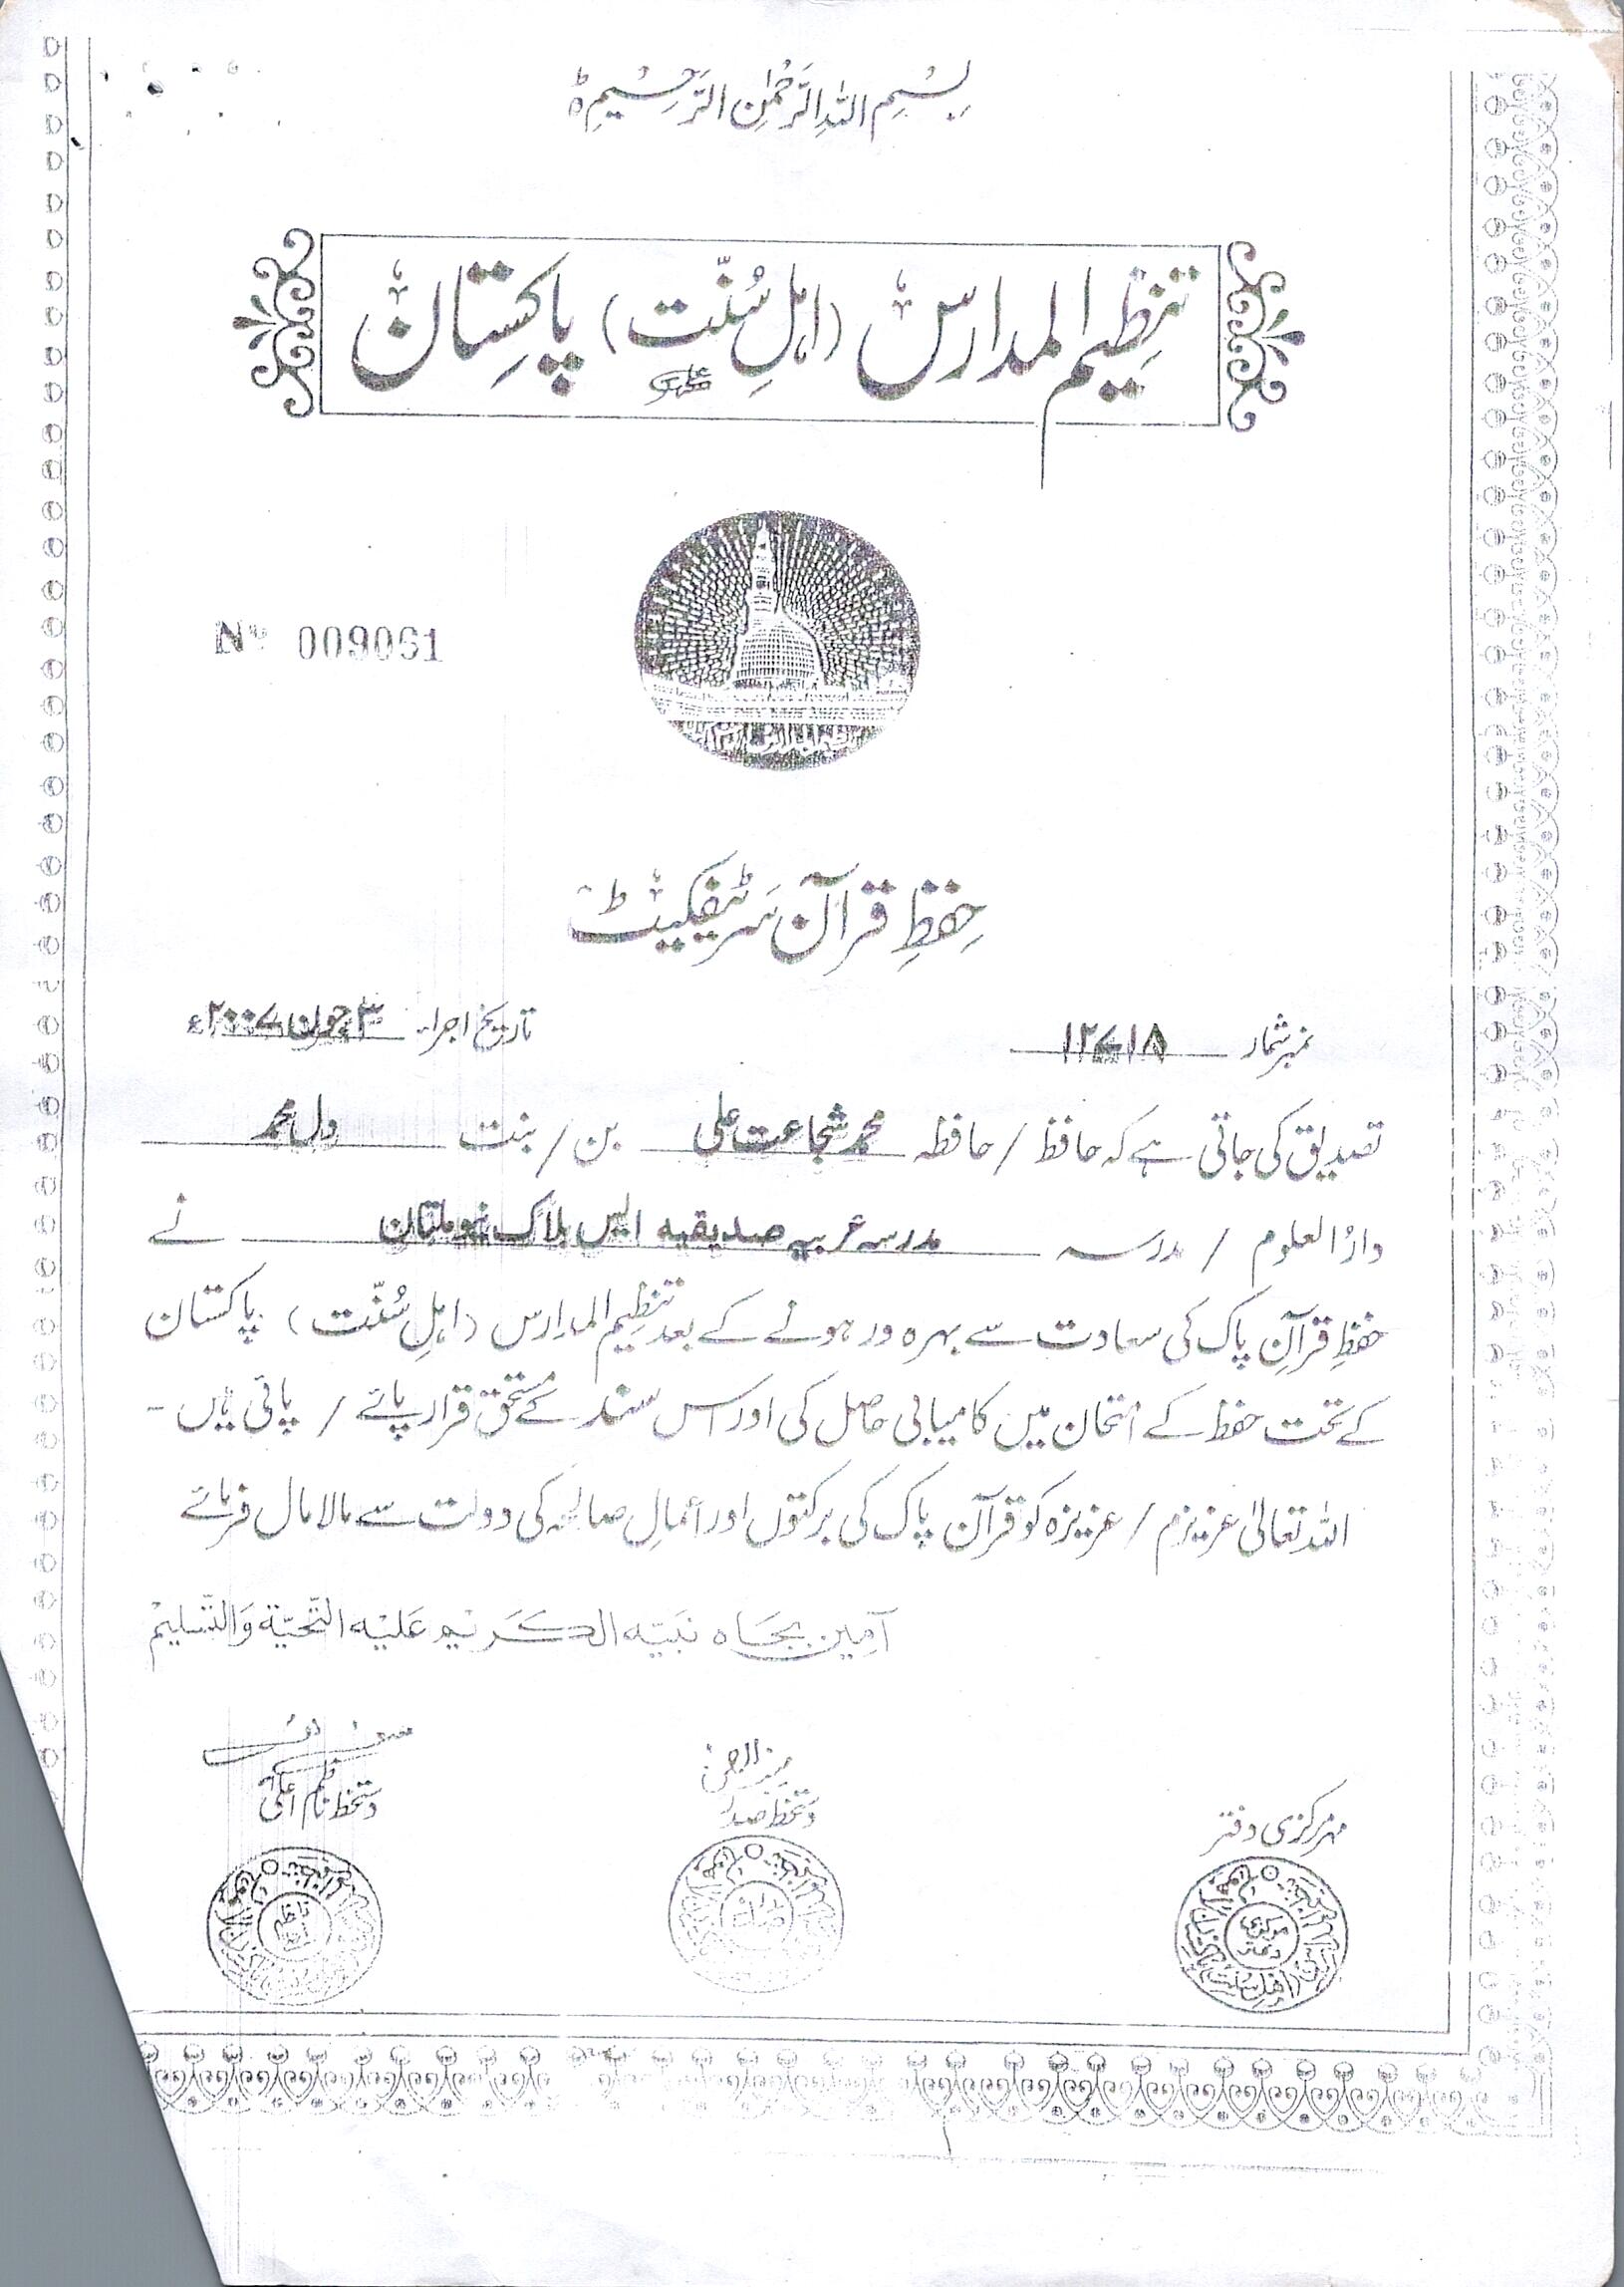 بِسْمِ اللہِ الرَّحْمٰنِ الرَّحِیْمِ ط
تنظیم المدارس (اہلِ سُنّت) پاکستان
Nº 009061
حِفظِ قرآن سرٹیفکیٹ
نمبر شمار ۱۲۷۱۸ تاریخ اجراء ۳ جون ۲۰۰۷ء
تصدیق کی جاتی ہے کہ حافظ / حافظہ محمد شجاعت علی بن / بنت دل محمد
دارُ العلوم / مدرسہ مدرسہ عربیہ صدیقیہ ایس بلاک نیو ملتان نے
حفظِ قرآنِ پاک کی سعادت سے بہرہ ور ہونے کے بعد تنظیم المدارس (اہلِ سُنّت) پاکستان
کے تحت حفظ کے امتحان میں کامیابی حاصل کی اور اس سند کے مستحق قرار پائے / پائی ہیں -
اللہ تعالیٰ عزیزم / عزیزہ کو قرآن پاک کی برکتوں اور اعمالِ صالحہ کی دولت سے مالا مال فرمائے
آمِین بِجَاہ نَبِیّہ الکَرِیْم عَلَیْہ التَّحِیّۃ وَالتَّسْلِیْم
مہر مرکزی دفتر
دستخط صدر
دستخط ناظم اعلیٰ
مرکزی
دفتر